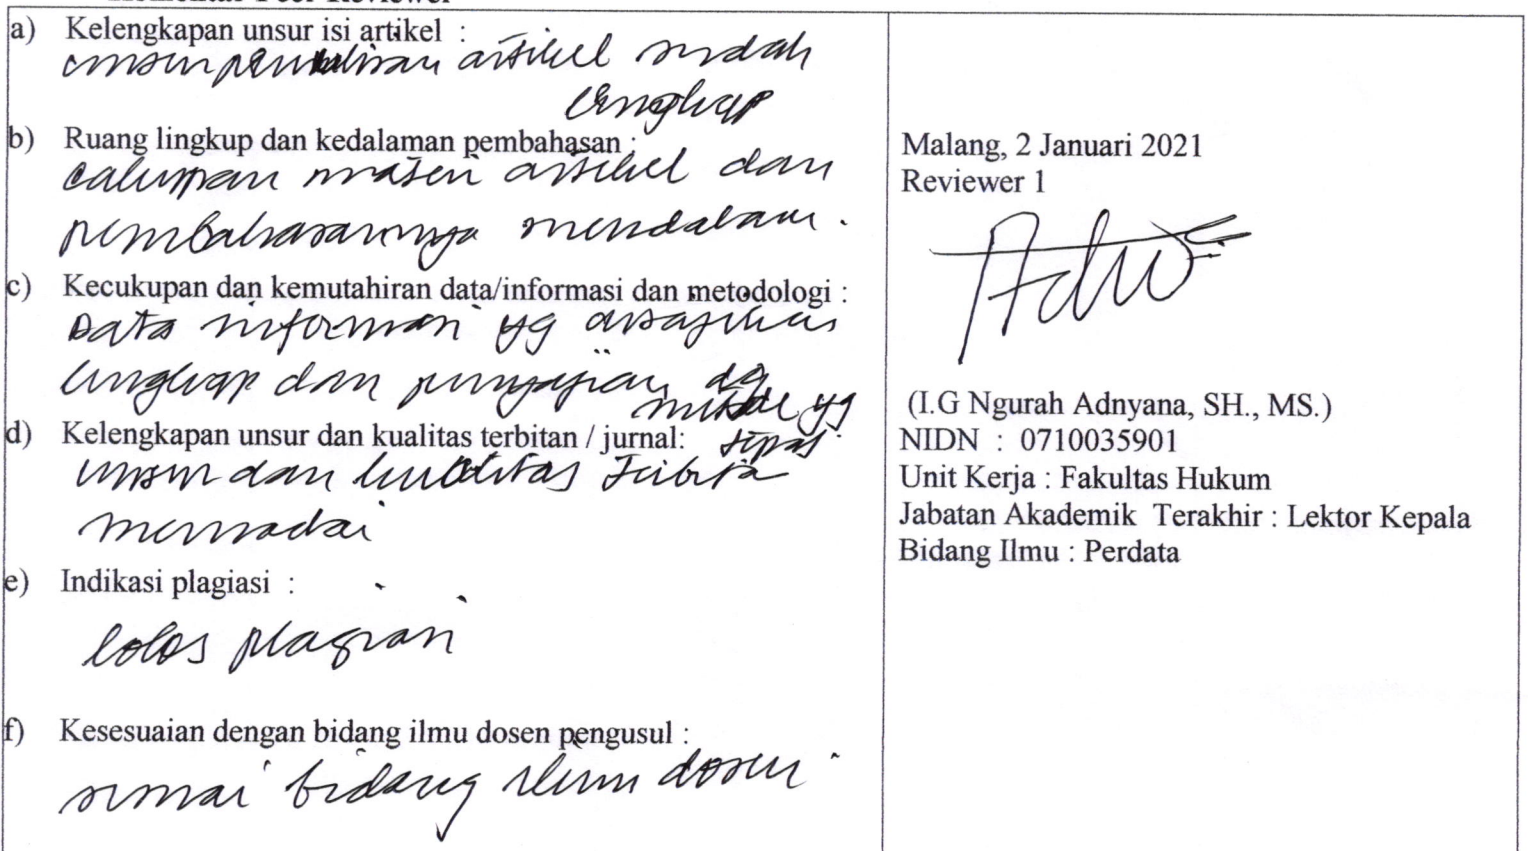 a) Kelengkapan unsur isi artikel :
unsur penulisan artikel sudah
lengkap
b) Ruang lingkup dan kedalaman pembahasan :
cakupan materi artikel dan
pembahasannya mendalam.
c) Kecukupan dan kemutahiran data/informasi dan metodologi :
Data informasi yg disajikan
lengkap dan penyajian dg
metode yg
d) Kelengkapan unsur dan kualitas terbitan / jurnal:
tepat
unsur dan kualitas
memadai
e) Indikasi plagiasi :
lolos plagiasi
f) Kesesuaian dengan bidang ilmu dosen pengusul :
sesuai bidang ilmu dosen
Malang, 2 Januari 2021
Reviewer 1
(I.G Ngurah Adnyana, SH., MS.)
NIDN : 0710035901
Unit Kerja : Fakultas Hukum
Jabatan Akademik Terakhir : Lektor Kepala
Bidang Ilmu : Perdata